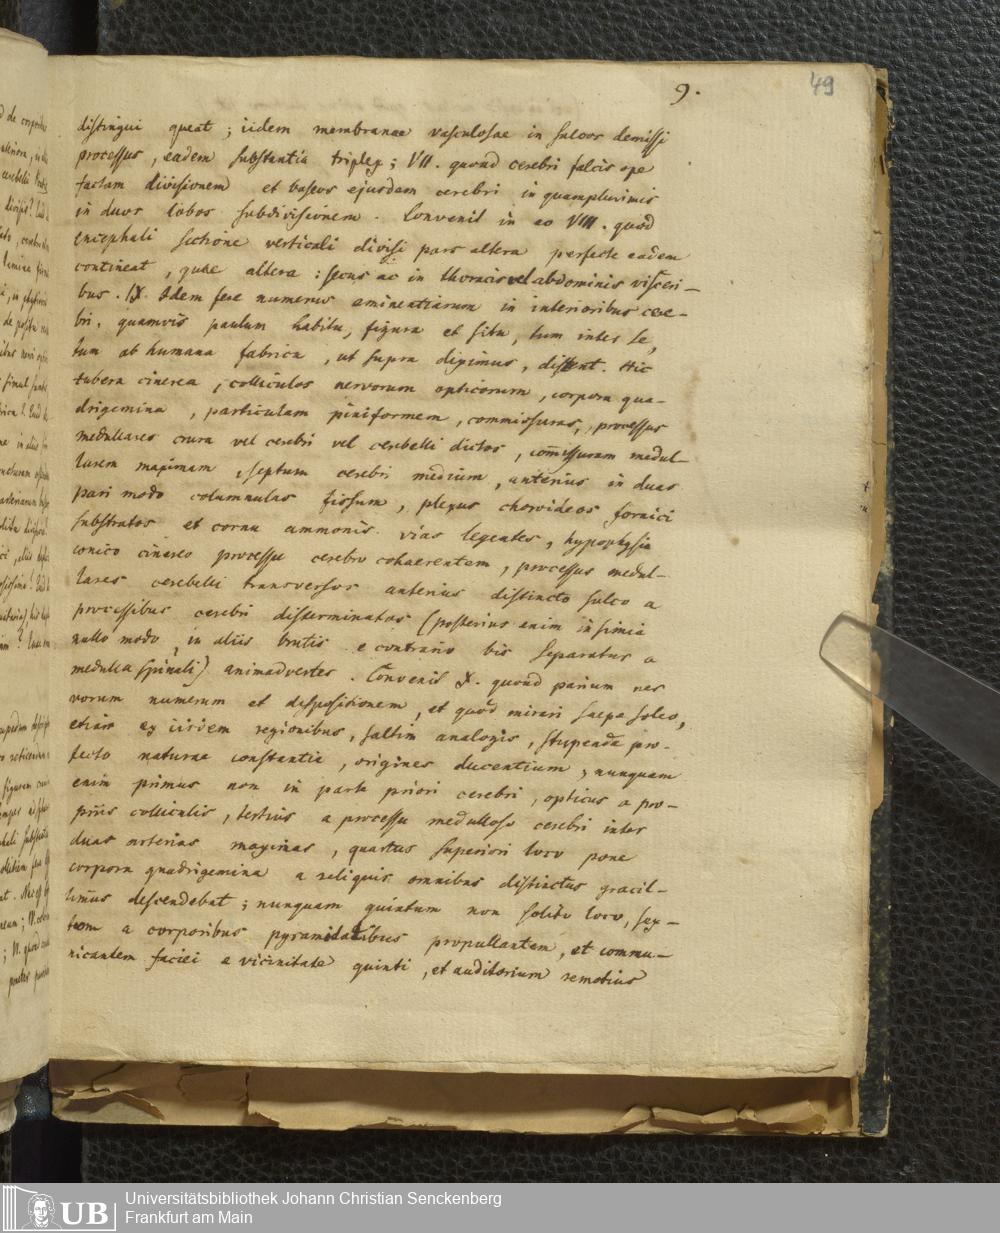 9.
49
distingui queat; iidem membranae vasculosae in sulcos demissi
processus, eadem substantia triplex; VII. quoad cerebri falcis ope
factam divisionem et baseos ejusdem cerebri in quamplurimis
in duos lobos subdivisionem. Convenit in eo VIII. quod
encephali sectione verticali divisi pars altera perfecte eadem
contineat, quae altera: secus ac in thoracis vel abdominis visceri-
bus. IX. Idem fere numerus eminentiarum in interioribus cere-
bri, quamvis paulum habitu, figura et situ, tum inter se,
tum ab humana fabrica, ut supra diximus, differant. Hic
tubera cinerea, colliculos nervorum opticorum, corpora qua-
drigemina, particulam piniformem, commissuras, processus
medullares crura vel cerebri vel cerebelli dictos, com̄issuram medul-
larem maximam, septum cerebri medium, anterius in duas
pari modo columnulas fissum, plexus choroideos fornici
substratos et cornu ammonis vias legentes, hypophysin
conico cinereo processu cerebro cohaerentem, processus medul-
lares cerebelli transversos anterius distincto sulco a
processibus cerebri disterminatos (posterius enim in simia
nullo modo, in aliis brutis e contrario bis separatur a
medulla spinali) animadvertes. Convenit X. quoad parium ner
vorum numerum et dispositionem, et quod mirari saepe soleo,
etiam ex iisdem regionibus, saltim analogis, stupenda pro-
fecto naturae constantia, origines ducentium; nunquam
enim primus non in parte priori cerebri, opticus a pro-
priis colliculis, tertius a processu medulloso cerebri inter
duas arterias maximas, quartus superiori loco pone
corpora quadrigemina a reliquis omnibus distinctus gracil-
lim̄us descendebat; nunquam quintum non solito loco, sex-
tum a corporibus pyramidalibus propullantem, et commu-
nicantem faciei a vicinitate quinti, et auditorium remotius
Universitätsbibliothek Johann Christian Senckenberg
Frankfurt am Main
UB